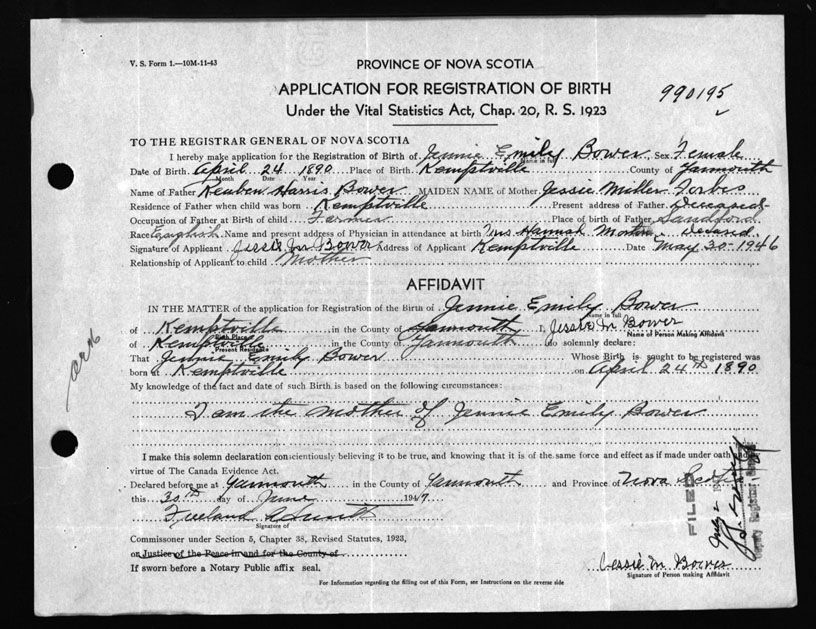 V. S. Form 1.—10M-11-43
PROVINCE OF NOVA SCOTIA
APPLICATION FOR REGISTRATION OF BIRTH
990195
Under the Vital Statistics Act, Chap. 20, R. S. 1923
TO THE REGISTRAR GENERAL OF NOVA SCOTIA
I hereby make application for the Registration of Birth of Jennie Emily Bower Sex Female
Name in full
Date of Birth April 24 1890 Place of Birth Kemptville County of Yarmouth
Month Date Year
Name of Father Reuben Harris Bower MAIDEN NAME of Mother Jessie Miller Forbes
Residence of Father when child was born Kemptville Present address of Father Deceased
Occupation of Father at Birth of child Farmer Place of birth of Father Sandford
Race English Name and present address of Physician in attendance at birth Mrs Hannah Deceased
Signature of Applicant Jessie M Bower Address of Applicant Kemptville Date May 30-1946
Relationship of Applicant to child Mother
AFFIDAVIT
IN THE MATTER of the application for Registration of the Birth of Jennie Emily Bower
Name in full
of Kemptville in the County of Yarmouth I, Jessie M Bower
Birth Place Name of Person Making Affidavit
of Kemptville in the County of Yarmouth do solemnly declare:
Present Residence
That Jennie Emily Bower Whose Birth is sought to be registered was
born at Kemptville on April 24th 1890
My knowledge of the fact and date of such Birth is based on the following circumstances:
I am the mother of Jennie Emily Bower
I make this solemn declaration conscientiously believing it to be true, and knowing that it is of the same force and effect as if made under oath and
virtue of The Canada Evidence Act.
Declared before me at Yarmouth in the County of Yarmouth and Province of Nova Scotia
this 30th day of June 1947
Freeland
Signature of
Commissioner under Section 5, Chapter 38, Revised Statutes, 1923,
or Justice of the Peace in and for the County of
If sworn before a Notary Public affix seal.
Jessie M Bower
Signature of Person making Affidavit
For Information regarding the filling out of this Form, see Instructions on the reverse side
FILED
Deputy Registrar